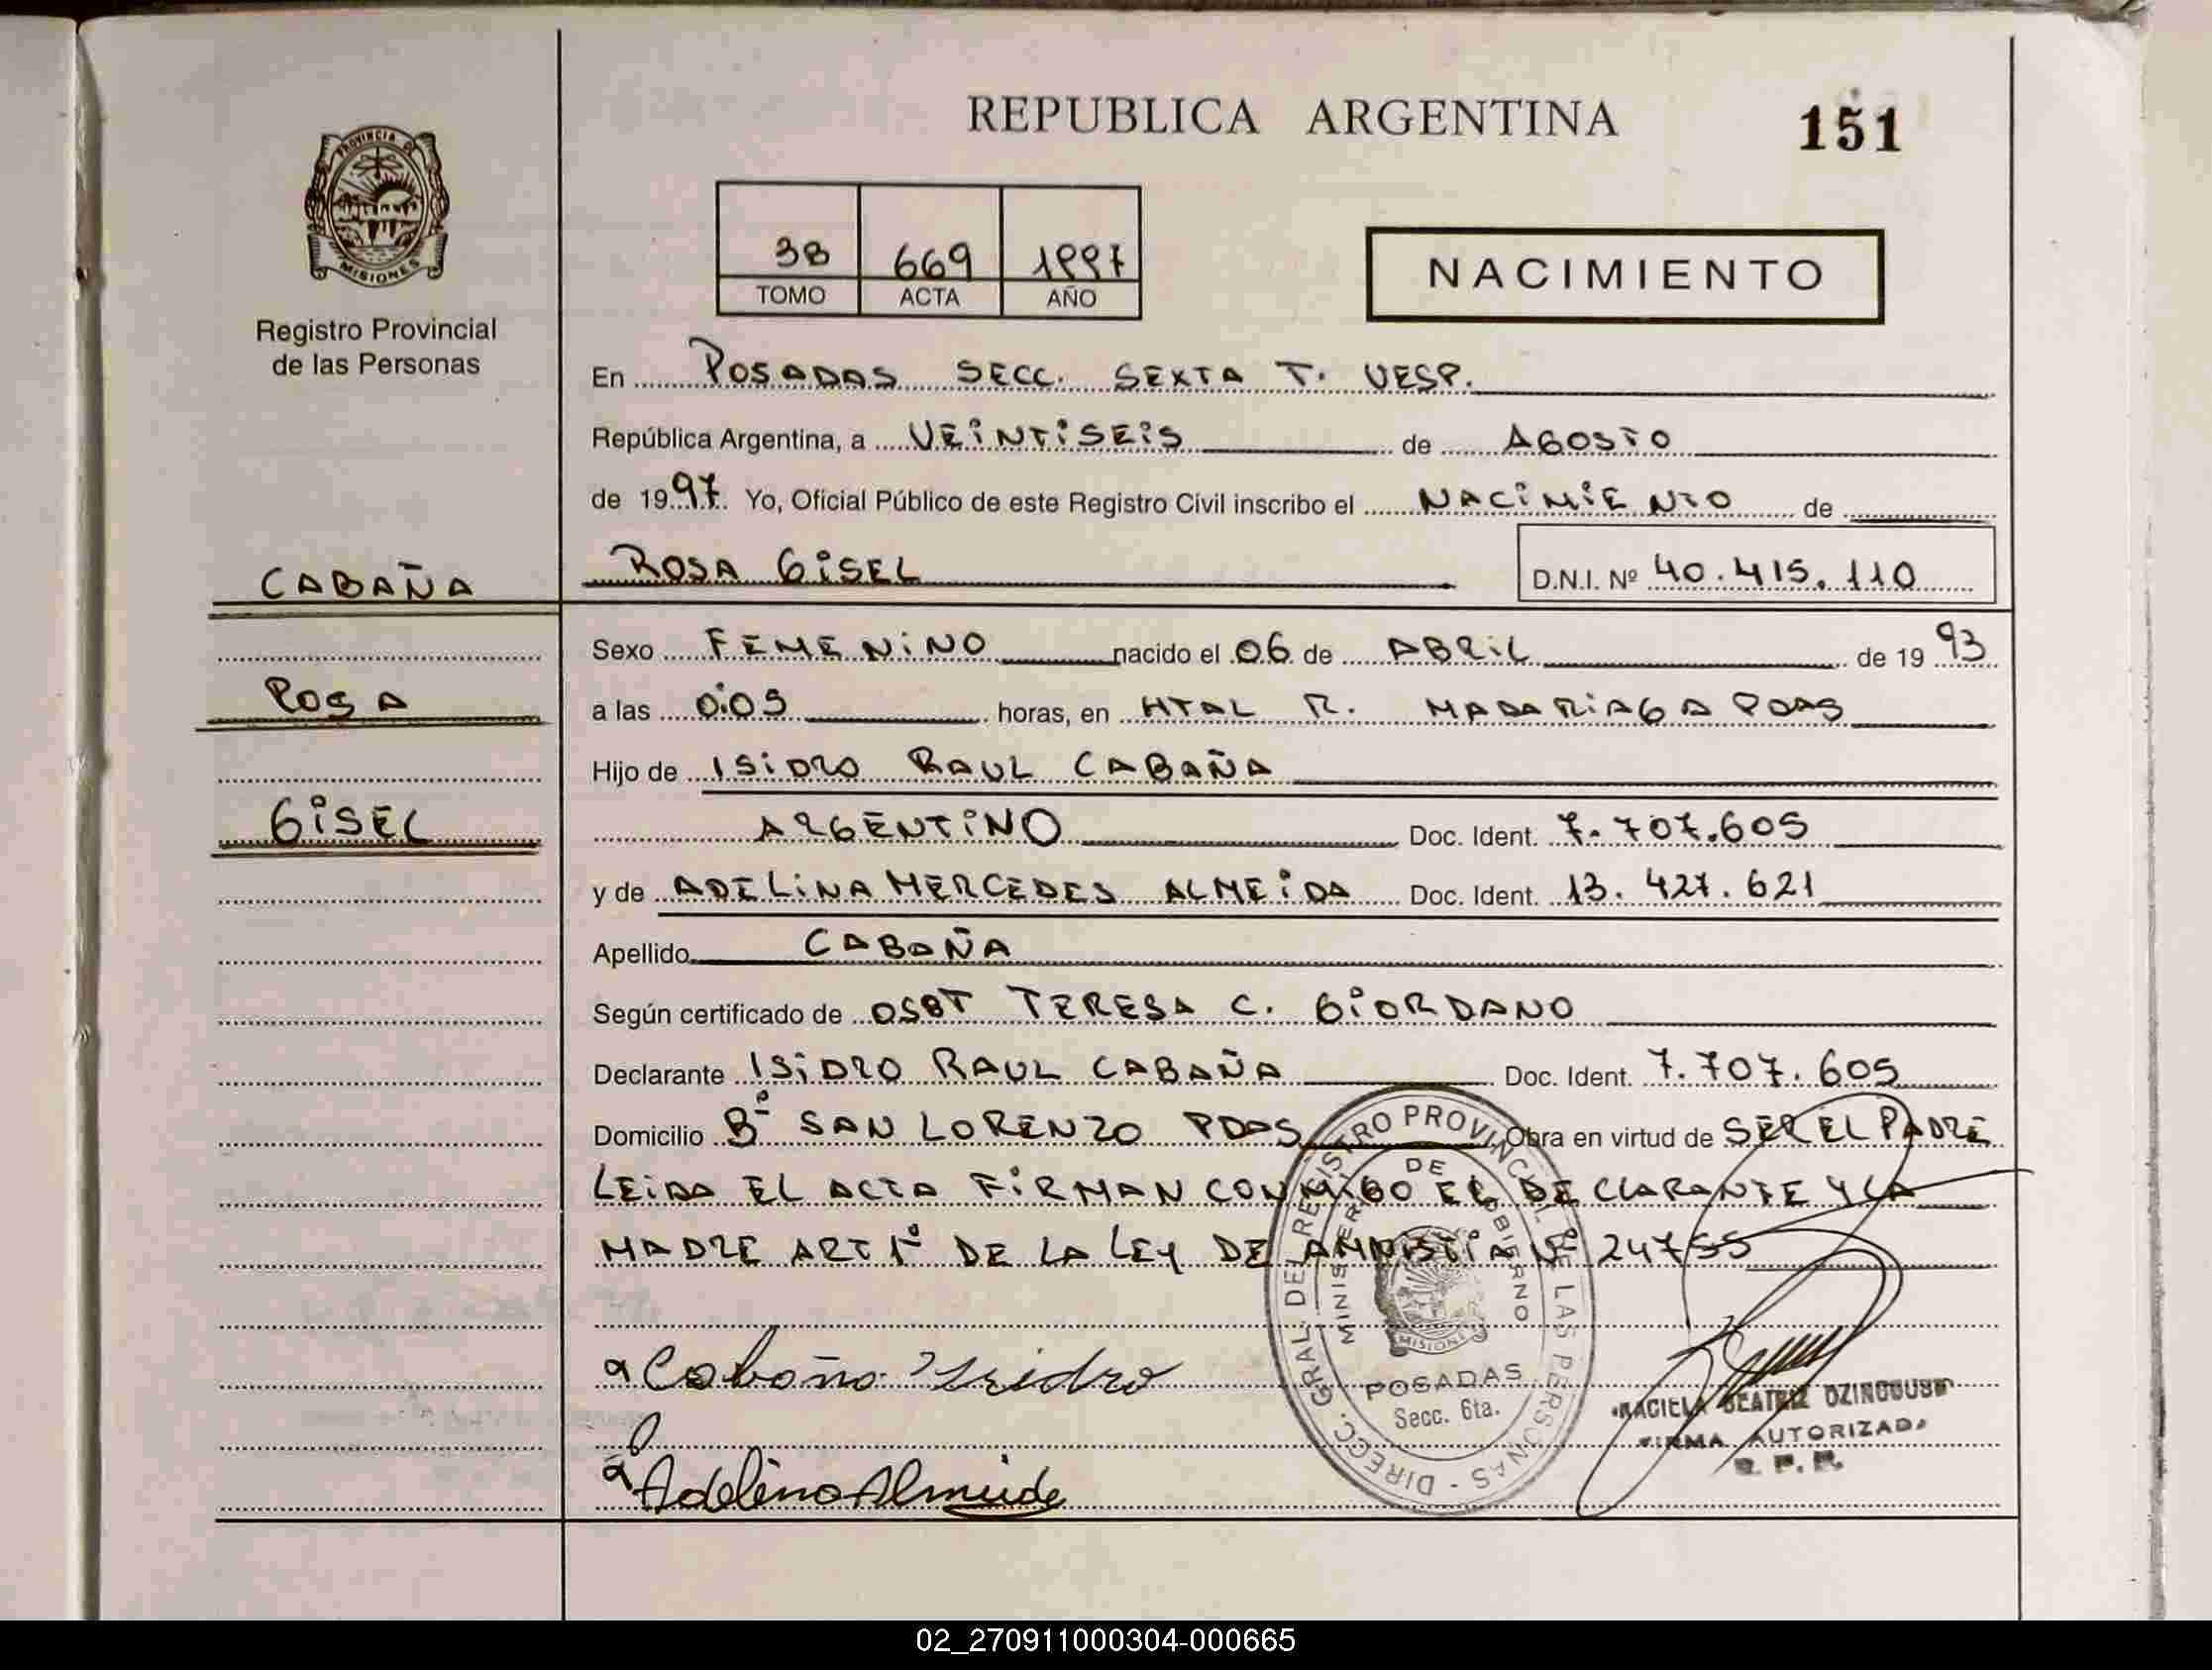 REPUBLICA ARGENTINA
151
PROVINCIA DE
MISIONES
Registro Provincial
de las Personas
3B 669 1997
TOMO ACTA AÑO
NACIMIENTO
En POSADAS SECC. SEXTA T. VESP.
República Argentina, a VEINTISEIS de AGOSTO
de 1997 Yo, Oficial Público de este Registro Civil inscribo el NACIMIENTO de
CABAÑA
ROSA GISEL D.N.I. Nº 40.415.110
Sexo FEMENINO nacido el 06 de ABRIL de 1993
ROSA
a las 0:05 horas, en HTAL R. MADARIAGA PDAS
Hijo de ISIDRO RAUL CABAÑA
GISEL
ARGENTINO Doc. Ident. 7.707.605
y de ADELINA MERCEDES ALMEIDA Doc. Ident. 13.427.621
Apellido CABAÑA
Según certificado de OSBT TERESA C. GIORDANO
Declarante ISIDRO RAUL CABAÑA Doc. Ident. 7.707.605
Domicilio Bº SAN LORENZO PDAS Obra en virtud de SER EL PADRE
LEIDA EL ACTA FIRMAN CONMIGO EL DECLARANTE Y LA
MADRE ART 1º DE LA LEY DE AMNISTIA Nº 24755
DIRECC. GRAL. DEL REGISTRO PROVINCIAL DE LAS PERSONAS -
MINISTERIO DE GOBIERNO
MISIONES
POSADAS
Secc. 6ta.
Cabaña Isidro
BEATRIZ
FIRMA AUTORIZADA
Adelina Almeida
02_270911000304-000665